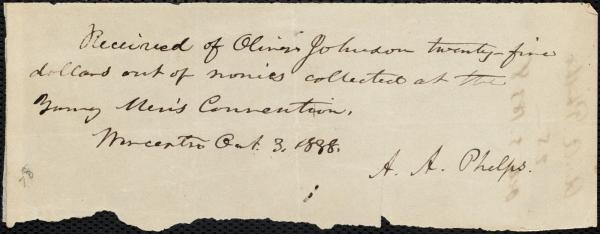 Received of Oliver Johnson twenty-five
dollars out of monies collected at the
Young Men's Convention.
Worcester Oct. 3. 1838.
A. A. Phelps.